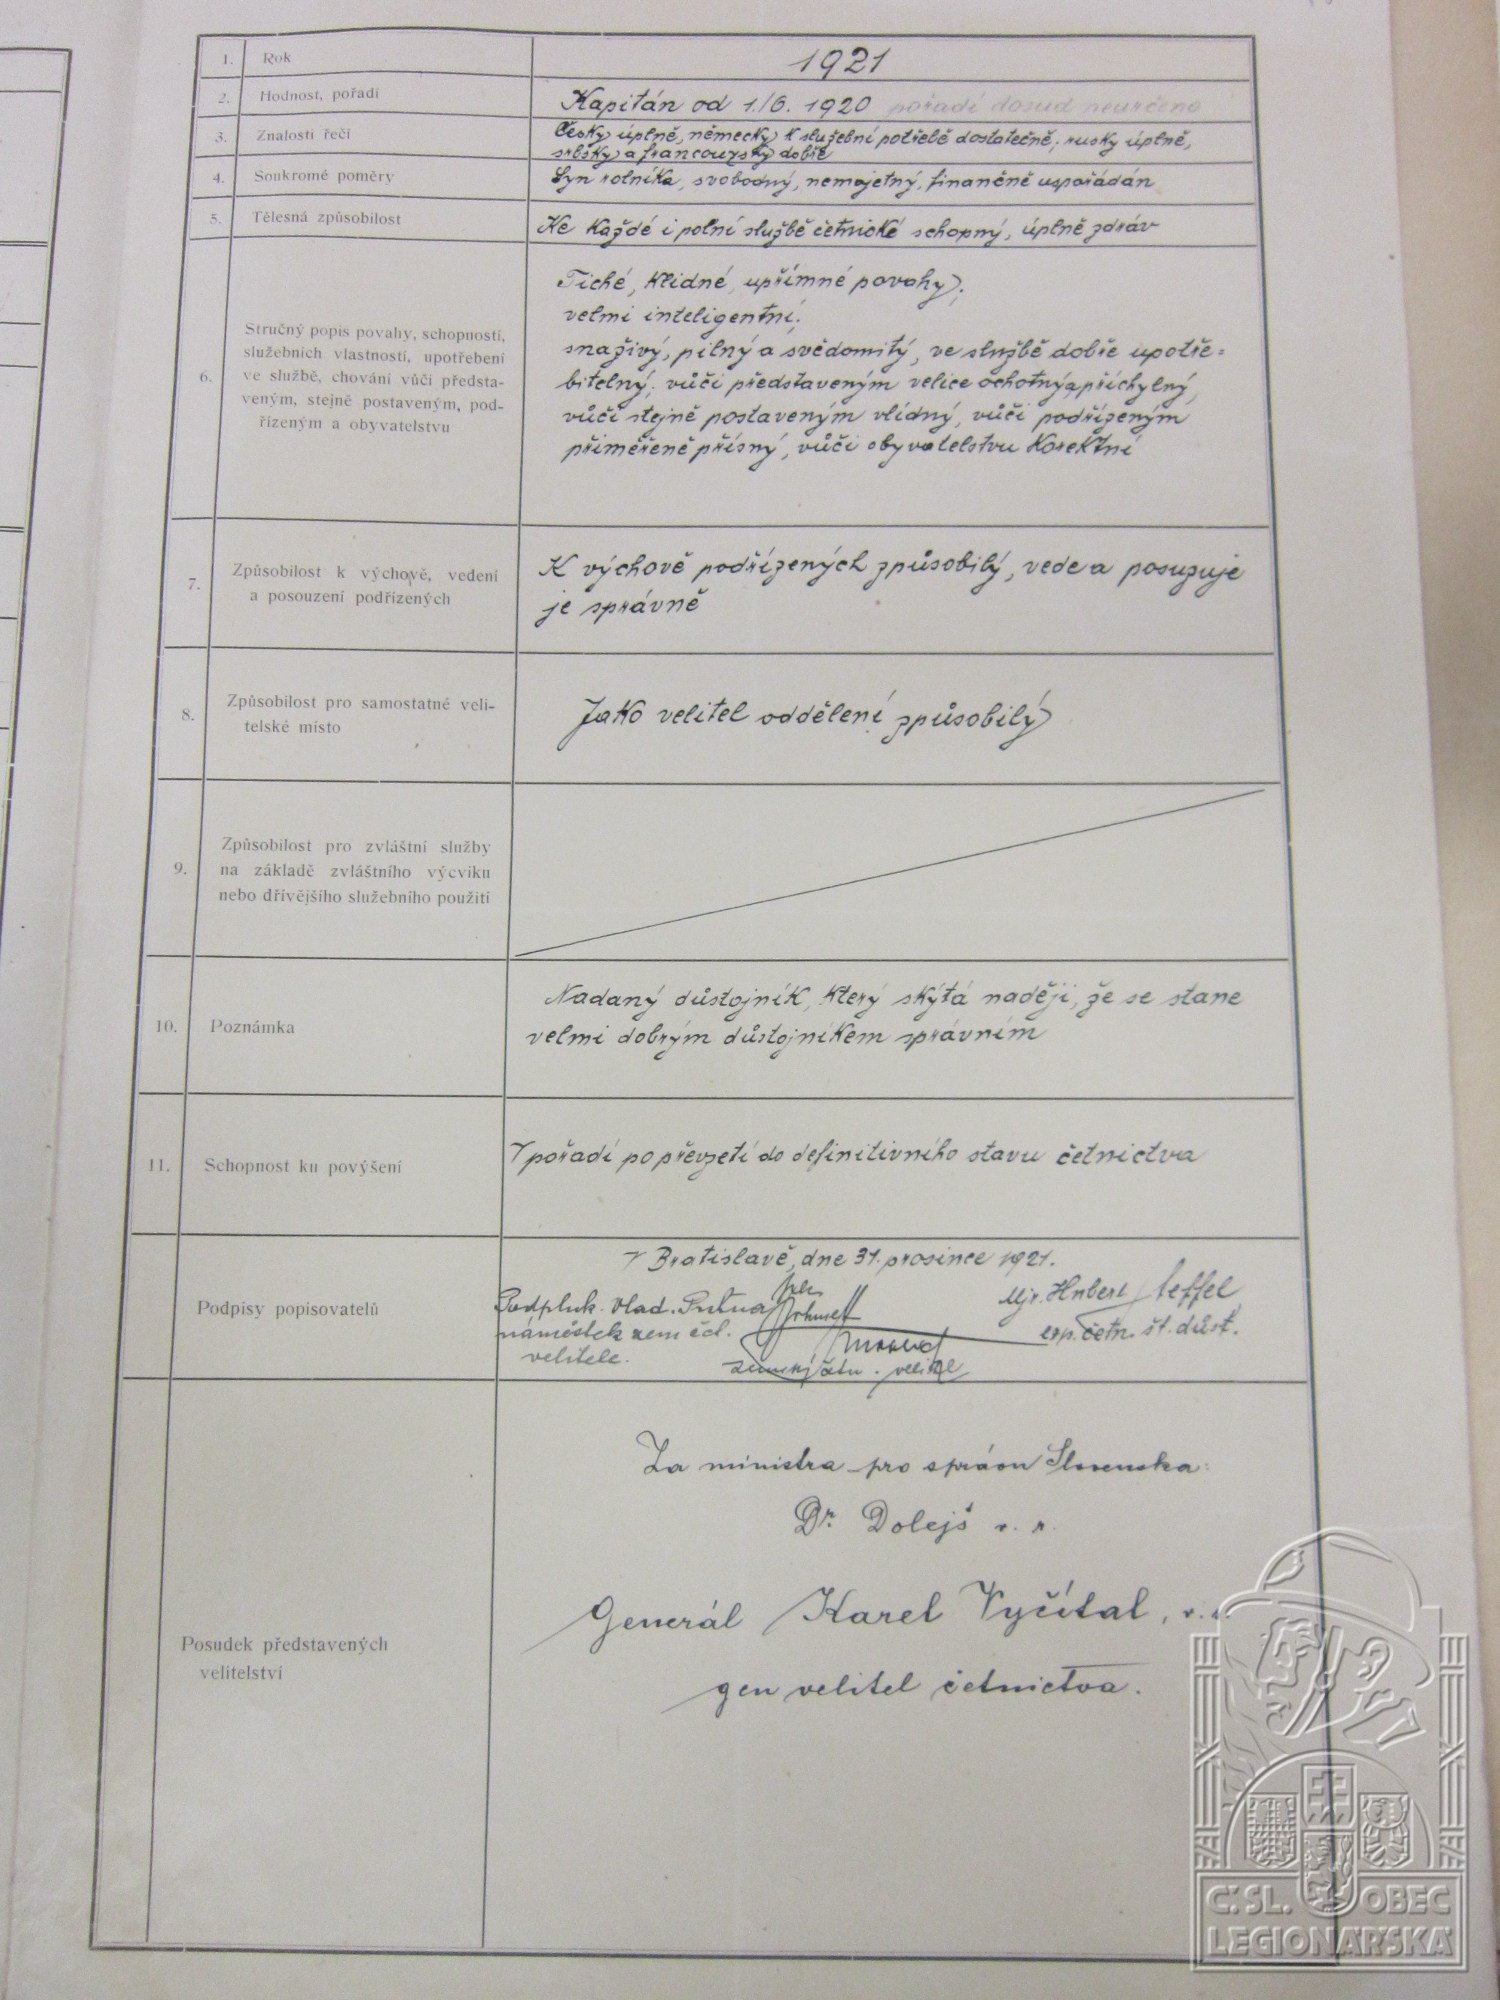 1. Rok 1921
2. Hodnost, pořadí Kapitán od 1./6. 1920 pořadí dosud neurčeno
3. Znalosti řečí Česky úplně, německy k služební potřebě dostatečně; rusky úplně,
srbsky a francouzsky dobře
4. Soukromé poměry Syn rolníka, svobodný, nemajetný, finančně uspořádán
5. Tělesná způsobilost Ke každé i polní službě četnické schopný, úplně zdráv
6. Stručný popis povahy, schopností,
služebních vlastností, upotřebení
ve službě, chování vůči předsta-
veným, stejně postaveným, pod-
řízeným a obyvatelstvu
Tiché, klidné, upřímné povahy;
velmi inteligentní;
snaživý, pilný a svědomitý, ve službě dobře upotře-
bitelný; vůči představeným velice ochotný a příchylný,
vůči stejně postaveným vlídný, vůči podřízeným
přiměřeně přísný, vůči obyvatelstvu korektní
7. Způsobilost k výchově, vedení
a posouzení podřízených
K výchově podřízených způsobilý, vede a posuzuje
je správně
8. Způsobilost pro samostatné veli-
telské místo
Jako velitel oddělení způsobilý
9. Způsobilost pro zvláštní služby
na základě zvláštního výcviku
nebo dřívějšího služebního použití
10. Poznámka
Nadaný důstojník, který skýtá naději, že se stane
velmi dobrým důstojníkem správním
11. Schopnost ku povýšení
V pořadí po převzetí do definitivního stavu četnictva
Podpisy popisovatelů
V Bratislavě, dne 31. prosince 1921.
Podpluk. Vlad.
náměstek zem. čet.
velitele.
zemský četn. velitel
Mjr. Hubert
exp. četn. št. důst.
Posudek představených
velitelství
Za ministra pro správu Slovenska:
Dr. Dolejš v. r.
Generál Karel Vyčítal, v. r.
gen velitel četnictva.
Č.SL. OBEC
LEGIONÁŘSKÁ